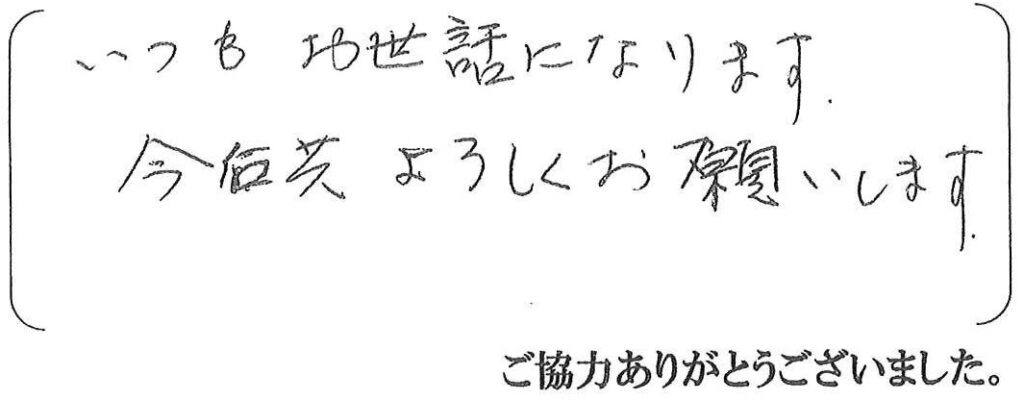 いつも お世話になります.
今后共 よろしくお願いします.
ご協力ありがとうございました。